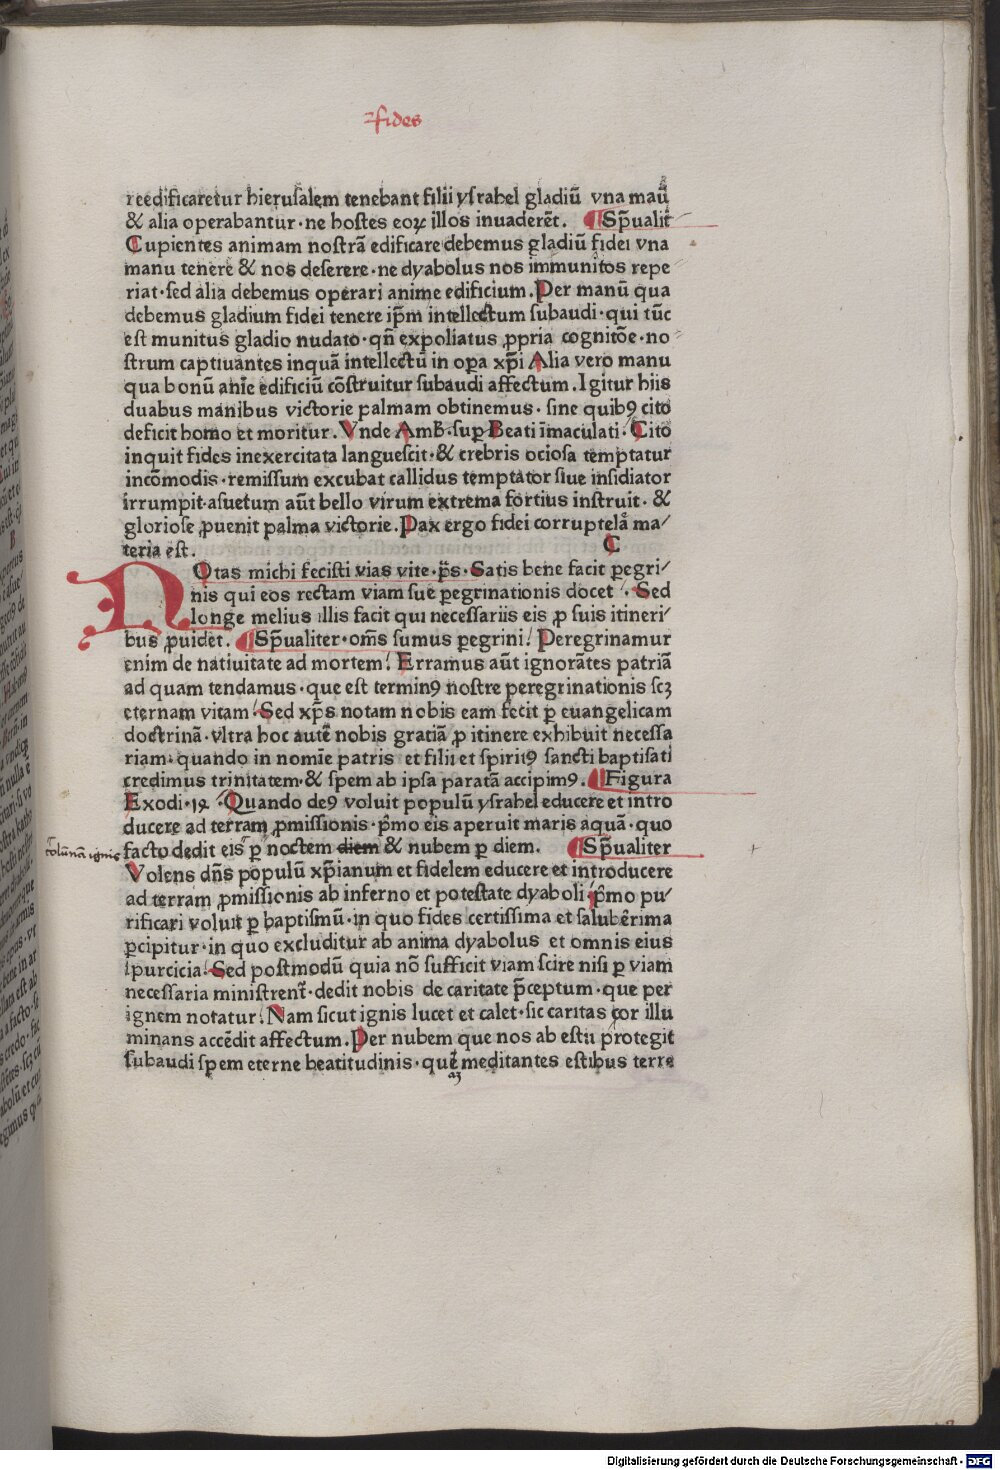 fides
reedificaretur hierusalem tenebant filii ysrahel gladiū vna manū
& alia operabantur·ne hostes eoꝝ illos inuaderēt. ¶Sp̄ualit̄
Cupientes animam nostrā edificare debemus gladiū fidei vna
manu tenere & nos deserere·ne dyabolus nos immunitos repe
riat·sed alia debemus operari anime edificium. Per manū qua
debemus gladium fidei tenere ip̄m intellectum subaudi·qui tūc
est munitus gladio nudato·qn̄ expoliatus ꝓpria cognitōe·no
strum captiuantes inquā intellectū in op̄a xp̄i Alia vero manu
qua bonū aīe edificiū cōstruitur subaudi affectum. Igitur hijs
duabus manibus victorie palmam obtinemus· sine quibꝰ cito
deficit homo et moritur. Vnde Amb̄·suꝑ Beati īmaculati· Cito
inquit fides inexercitata languescit·& crebris ociosa temptatur
incōmodis·remissum excubat callidus temptator siue insidiator
irrumpit·asuetum aūt bello virum extrema fortius instruit· &
gloriose ꝓuenit palma victorie. Pax ergo fidei corruptela ma/
teria est.
C
NOtas michi fecisti vias vite·p̄s·Satis bene facit ꝑegri/
nis qui eos rectam viam sue ꝑegrinationis docet ·Sed
longe melius illis facit qui necessariis eis ꝓ suis itineri/
bus ꝓuidet. ¶Sp̄ualiter·om̄s sumus ꝑegrini! Peregrinamur
enim de natiuitate ad mortem! Erramus aūt ignorātes patriā
ad quam tendamus·que est terminꝰ nostre ꝑegrinationis scꝫ
eternam vitam! Sed xp̄s notam nobis eam fecit ꝑ euangelicam
doctrinā·vltra hoc autē nobis gratiā ꝓ itinere exhibuit necessa
riam·quando in nomīe patris et filii et spiritꝰ sancti baptisati
credimus trinitatem·& spem ab ipsa paratā accipimꝰ. ¶Figura
Exodi·19·Quando deꝰ voluit populū ysrahel educere et intro
ducere ad terram ꝓmissionis·p̄mo eis aperuit maris aquā·quo
colūnā ignis
facto dedit eis ꝑ noctem diem & nubem ꝑ diem. ¶Sp̄ualiter
Volens dn̄s populū xp̄ianum et fidelem educere et introducere
ad terram ꝓmissionis ab inferno et potestate dyaboli·p̄mo pu/
rificari voluit ꝑ baptismū·in quo fides certissima et salubērima
ꝑcipitur·in quo excluditur ab anima dyabolus et omnis eius
spurcicia! Sed postmodū quia nō sufficit viam scire nisi ꝑ viam
necessaria ministrent̄·dedit nobis de caritate p̄ceptum·que per
ignem notatur! Nam sicut ignis lucet et calet·sic caritas cor illu
minans accēdit affectum. Per nubem que nos ab estu protegit
subaudi spem eterne beatitudinis·quē meditantes estibus terre
Digitalisierung gefördert durch die Deutsche Forschungsgemeinschaft - DFG